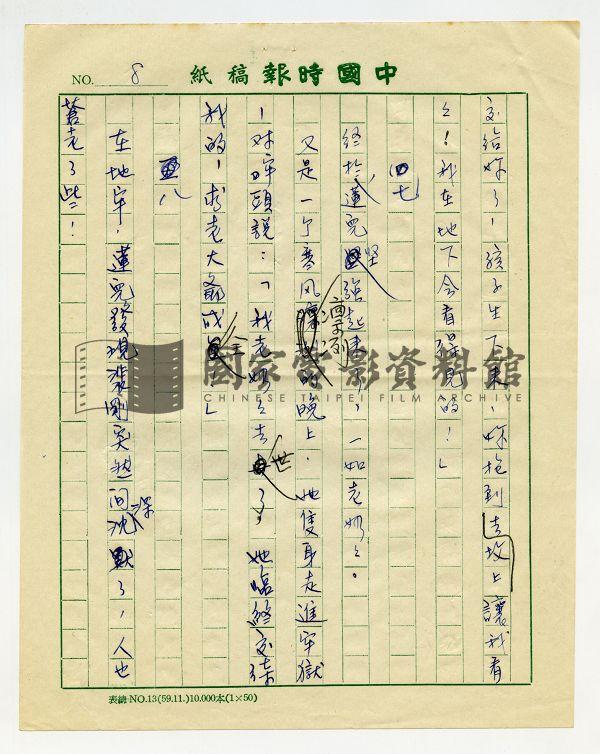 中國時報稿紙
NO. 8
交給妳了！孩子生下來，妳抱到我墳上讓我看
之！我在地下會看得見的！」
四七
終於蓮兒堅強起來，一如老奶之。
又是一个寒风凜冽的晚上，她隻身走進牢獄
，对牢頭說：「我老奶之去世了，她臨終交待
我的，求老大爺成全」
五八
在地牢，蓮兒發現裴剛突然间沈默了，人也
蒼老了些！
國家電影資料館
CHINESE TAIPEI FILM ARCHIVE
表總-NO.13(59.11.)10.000本(1×50)